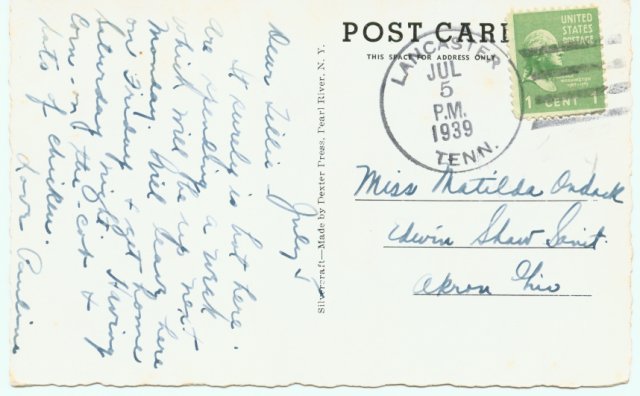 POST CARD
THIS SPACE FOR ADDRESS ONLY
LANCASTER
JUL
5
P.M.
1939
TENN.
UNITED
STATES
POSTAGE
WASHINGTON
1 CENT 1
July 5
Dear Tillie
It surely is hot here.
Are spending a week
which will be up next
Monday. Will leave here
on Friday & get home
Saturday night. Having
Corn-on-the-cob &
lots of chicken.
Love Pauline
Silvercraft—Made by Dexter Press, Pearl River, N. Y.
Miss Matilda Ondack
Edwin Shaw Sanit.
Akron Ohio